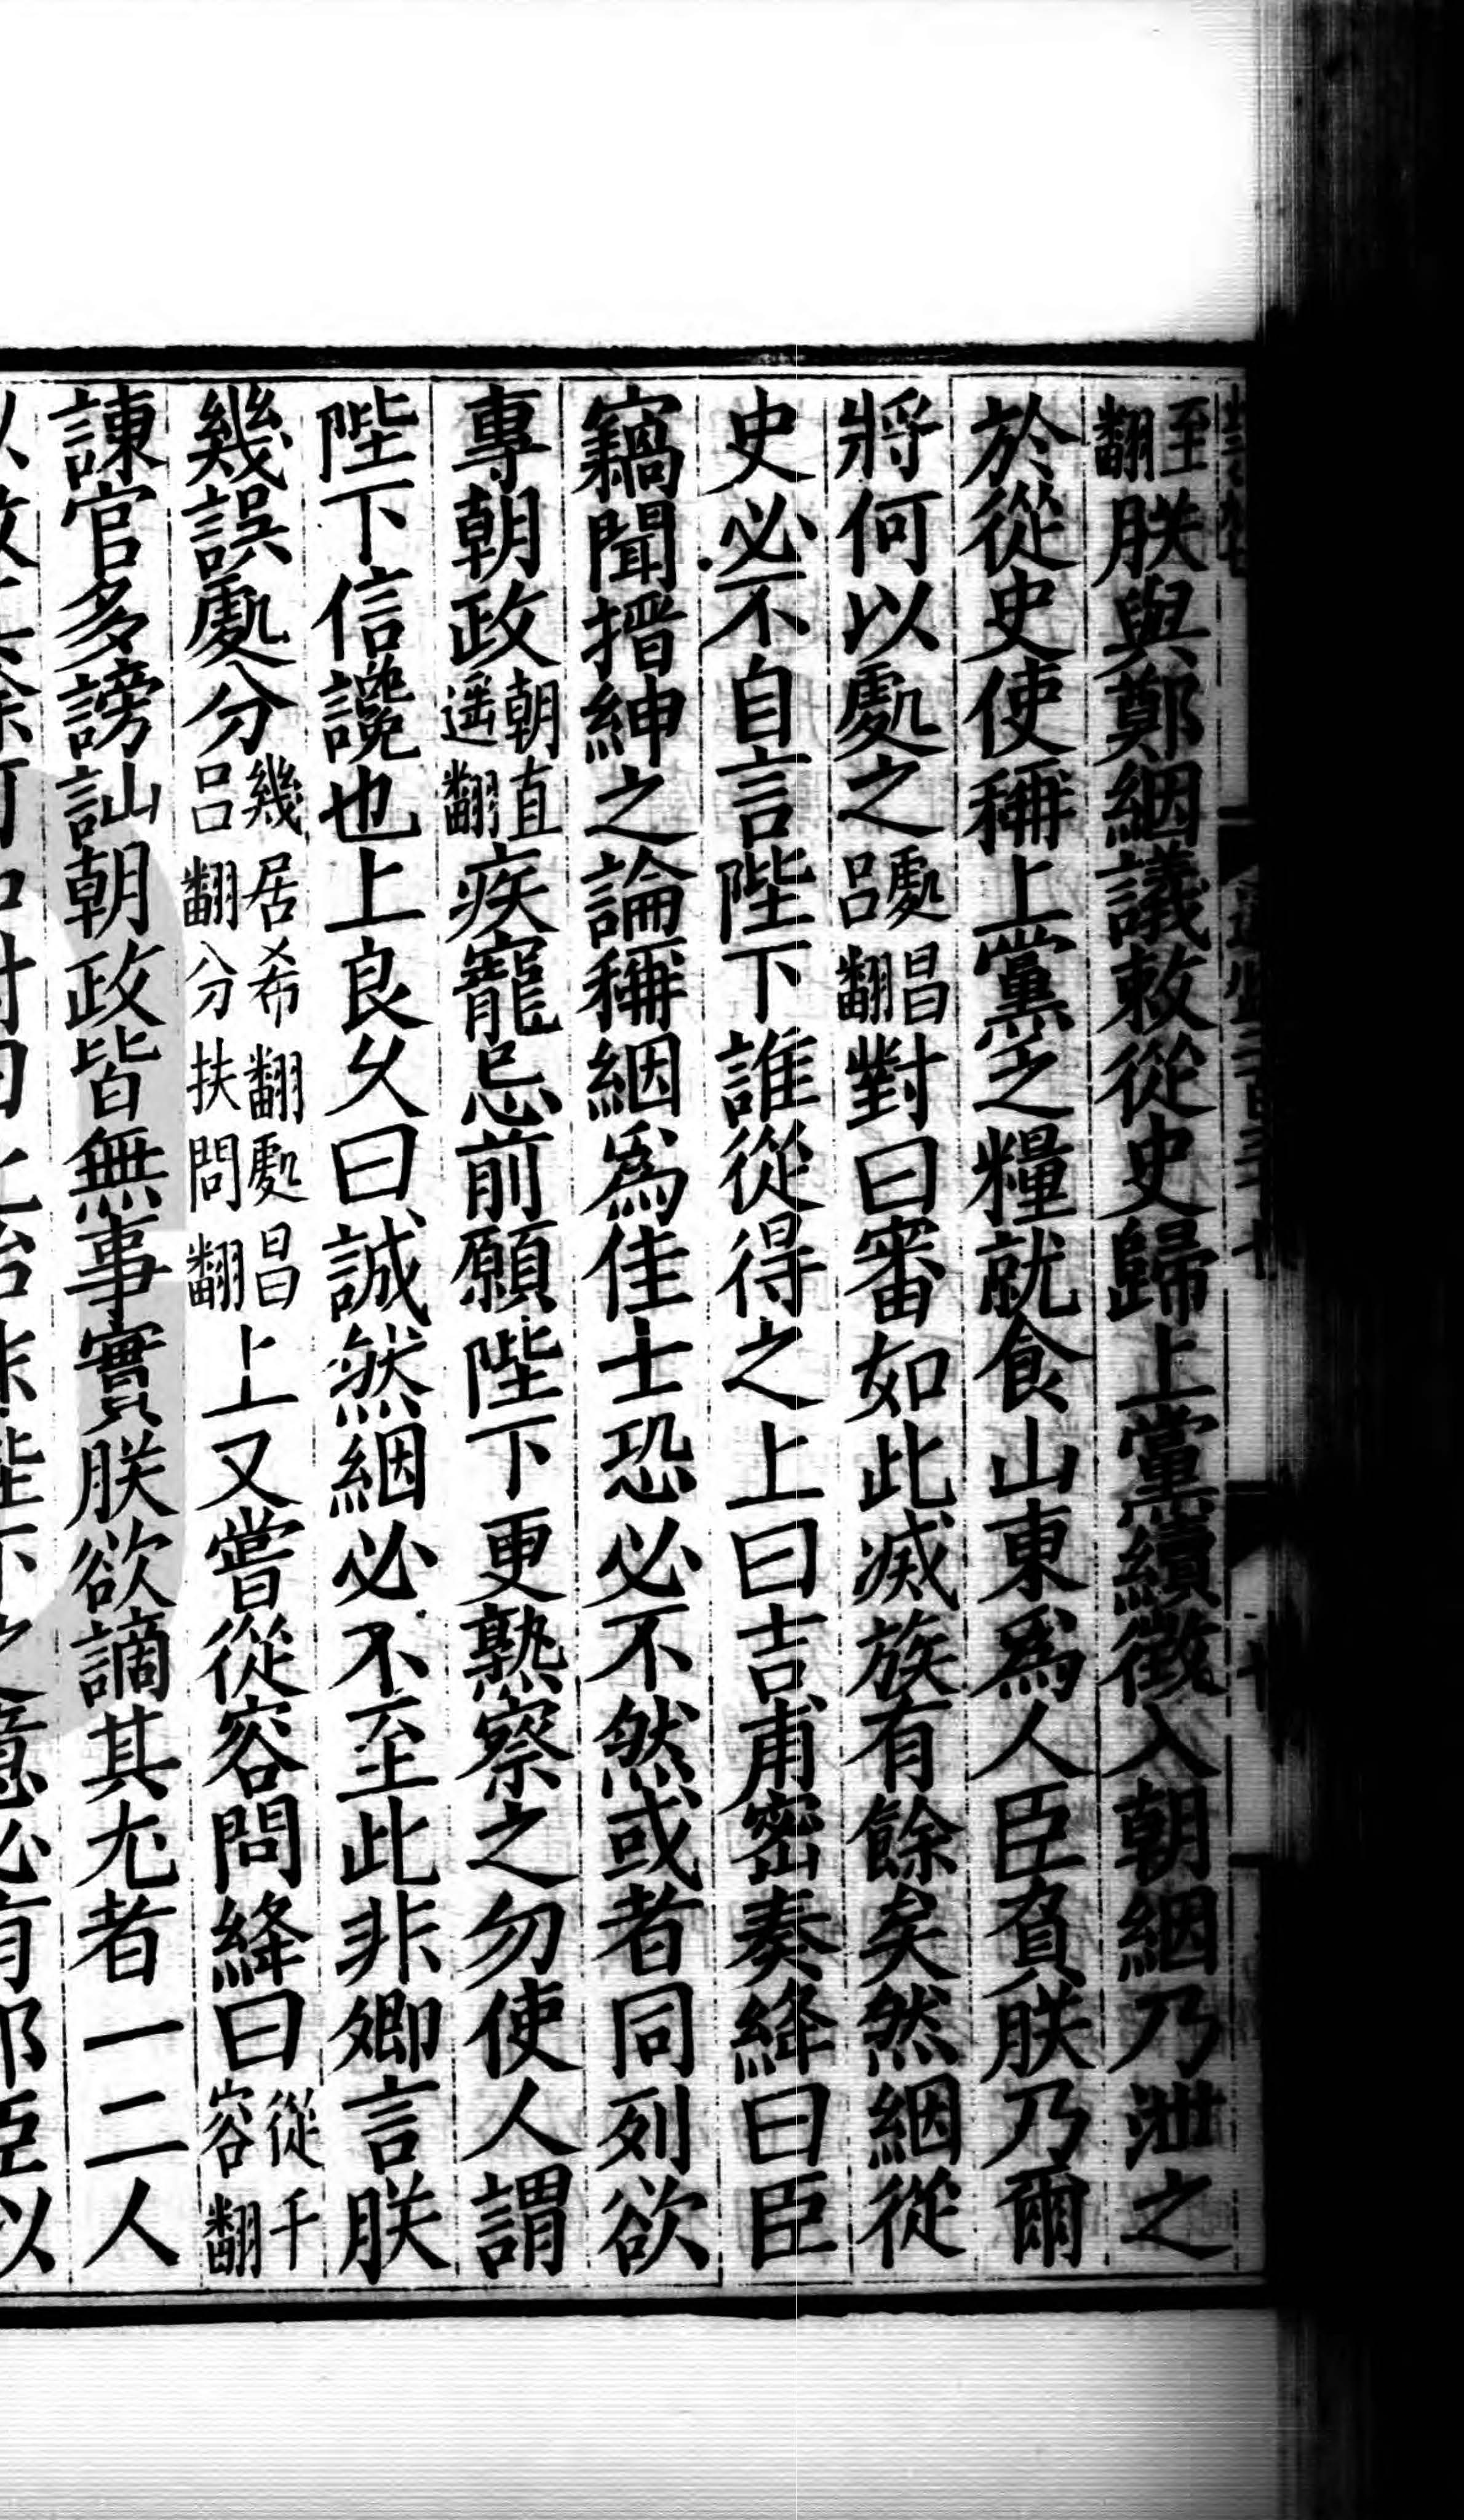 至翻朕與鄭絪議敕從史歸上黨續徵入朝絪乃泄之
於從史使稱上黨乏糧就食山東爲人臣負朕乃爾
將何以處之處昌呂翻對曰審如此滅族有餘矣然絪從
史必不自言陛下誰從得之上曰吉甫密奏絳曰臣
竊聞搢紳之論稱絪爲佳士恐必不然或者同列欲
專朝政朝直遥翻疾寵忌前願陛下更熟察之勿使人謂
陛下信讒也上良久曰誠然絪必不至此非卿言朕
幾誤處分幾居希翻處昌呂翻分扶問翻上又嘗從容問絳曰從千容翻
諫官多謗訕朝政皆無事實朕欲謫其尤者一二人